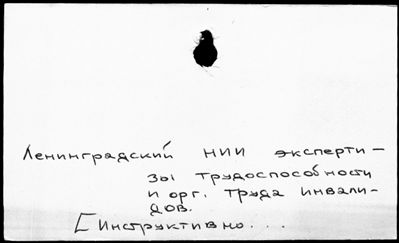 Ленинградский НИИ эксперти-
зы трудоспособности
и орг. труда инвали-
дов.
[Инструктивно...